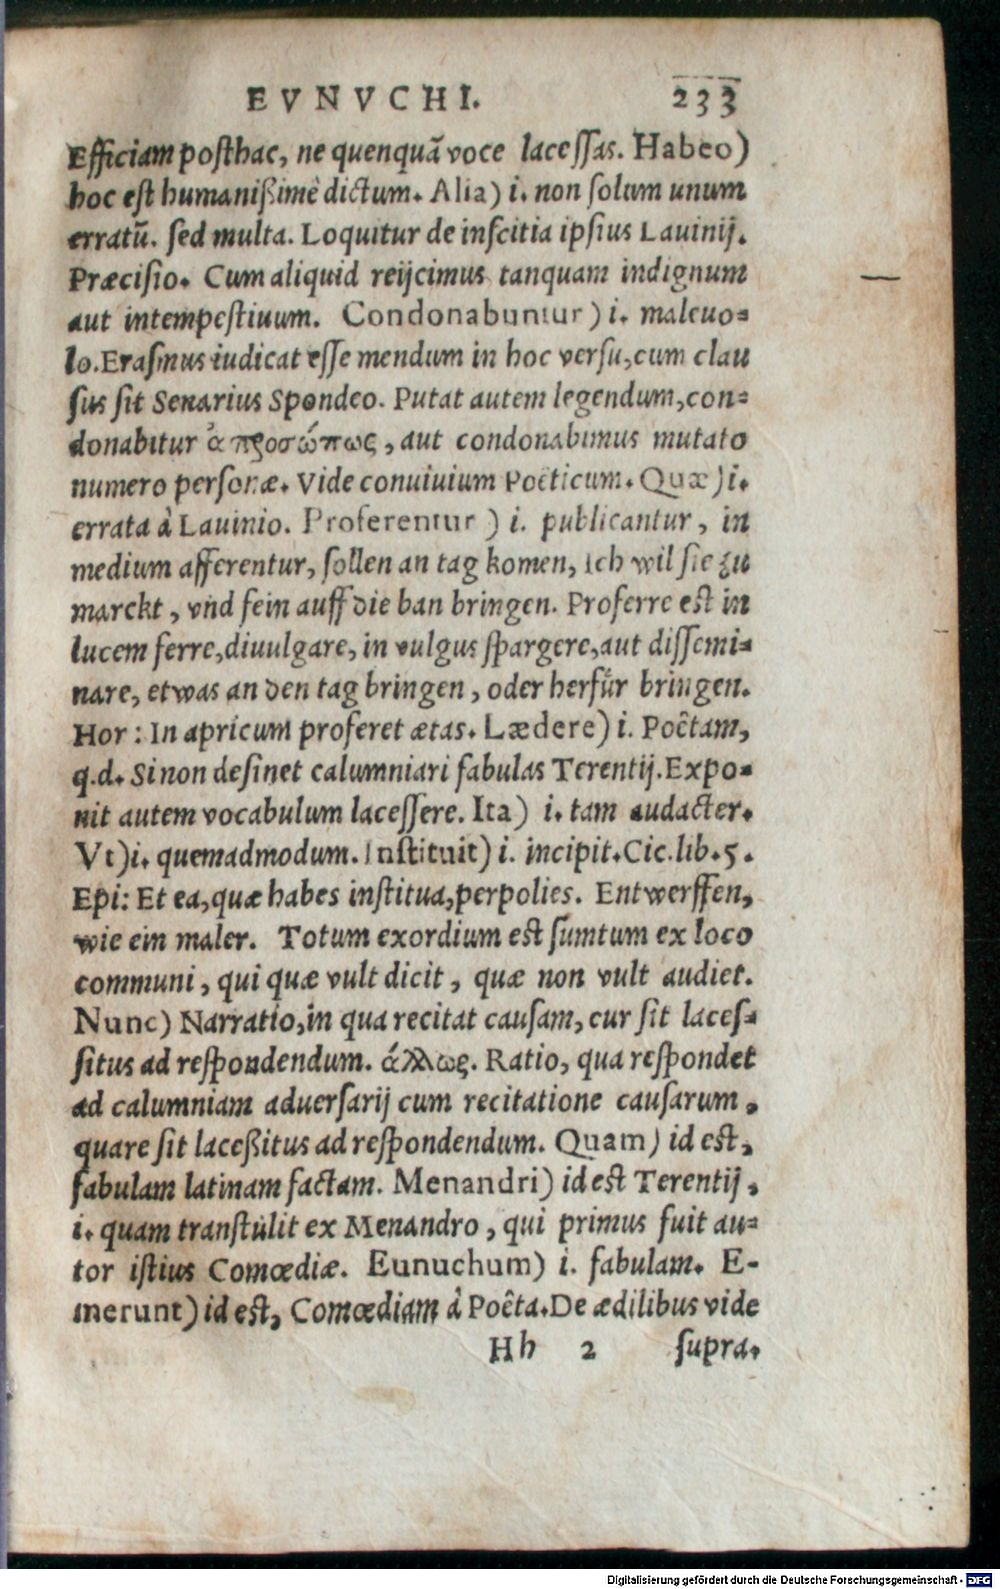 EVNVCHI. 233
Efficiam posthac, ne quenquā voce lacessas. Habeo)
hoc est humanißimè dictum. Alia) i. non solum unum
erratū. sed multa. Loquitur de inscitia ipsius Lauinij.
Præcisio. Cum aliquid reijcimus tanquam indignum
aut intempestiuum. Condonabuntur) i. maleuo-
lo. Erasmus iudicat esse mendum in hoc versu, cum clau
sus sit Senarius Spondeo. Putat autem legendum, con-
donabitur ἀπροσώπως, aut condonabimus mutato
numero personæ. Vide conuiuium Poëticum. Quæ) i.
errata à Lauinio. Proferentur) i. publicantur, in
medium afferentur, sollen an tag komen, ich wil sie zu
marckt, vnd fein auff die ban bringen. Proferre est in
lucem ferre, diuulgare, in vulgus spargere, aut dissemi-
nare, etwas an den tag bringen, oder herfür bringen.
Hor: In apricum proferet ætas. Lædere) i. Poêtam,
q.d. Si non desinet calumniari fabulas Terentij. Expo-
nit autem vocabulum lacessere. Ita) i. tam audacter.
Vt) i. quemadmodum. Instituit) i. incipit. Cic. lib. 5.
Epi: Et ea, quæ habes institua, perpolies. Entwerffen,
wie ein maler. Totum exordium est sumtum ex loco
communi, qui quæ vult dicit, quæ non vult audiet.
Nunc) Narratio, in qua recitat causam, cur sit laces-
situs ad respondendum. ἄλλως. Ratio, qua respondet
ad calumniam aduersarij cum recitatione causarum,
quare sit laceßitus ad respondendum. Quam) id est,
fabulam latinam factam. Menandri) id est Terentij,
i. quam transtulit ex Menandro, qui primus fuit au-
tor istius Comœdiæ. Eunuchum) i. fabulam. E-
merunt) id est, Comœdiam à Poêta. De ædilibus vide
Hh 2 supra.
Digitalisierung gefördert durch die Deutsche Forschungsgemeinschaft - DFG